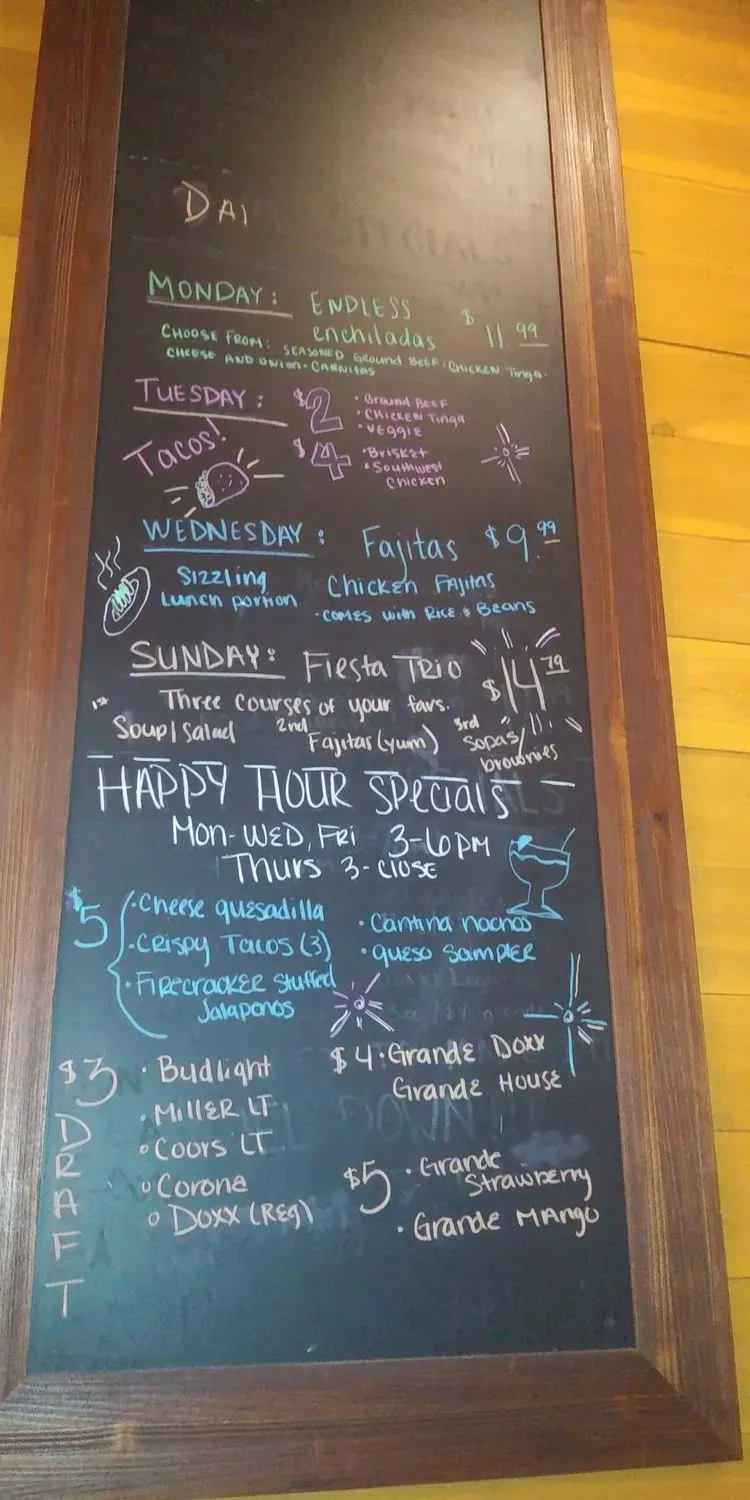 DAI
SPECIALS
MONDAY: ENDLESS enchiladas $11.99
CHOOSE FROM: SEASONED Ground BEEF · CHICKEN Tinga ·
CHEESE AND ONION · CARNITAS
TUESDAY: $2 · Ground BEEF
· CHICKEN Tinga
· VEGGIE
Tacos! $4 · Brisket
· Southwest
Chicken
WEDNESDAY: Fajitas $9.99
Sizzling Chicken Fajitas
Lunch portion - comes with Rice & Beans
SUNDAY: Fiesta Trio $14.79
Three courses of your favs.
1st Soup/salad 2nd Fajitas (yum) 3rd Sopas/
brownies
HAPPY HOUR Specials
Mon-WED, Fri 3-6 PM
Thurs 3-close
$5 · Cheese quesadilla · Cantina nachos
· CRISPY Tacos (3) · queso SAMPLER
· FIRECRACKER stuffed
Jalapenos
$3 DRAFT · Budlight $4 · Grande Doxx
Grande House
· MillER LT
· Coors LT
· Corona $5 · Grande
Strawberry
· Doxx (Reg) · Grande Mango